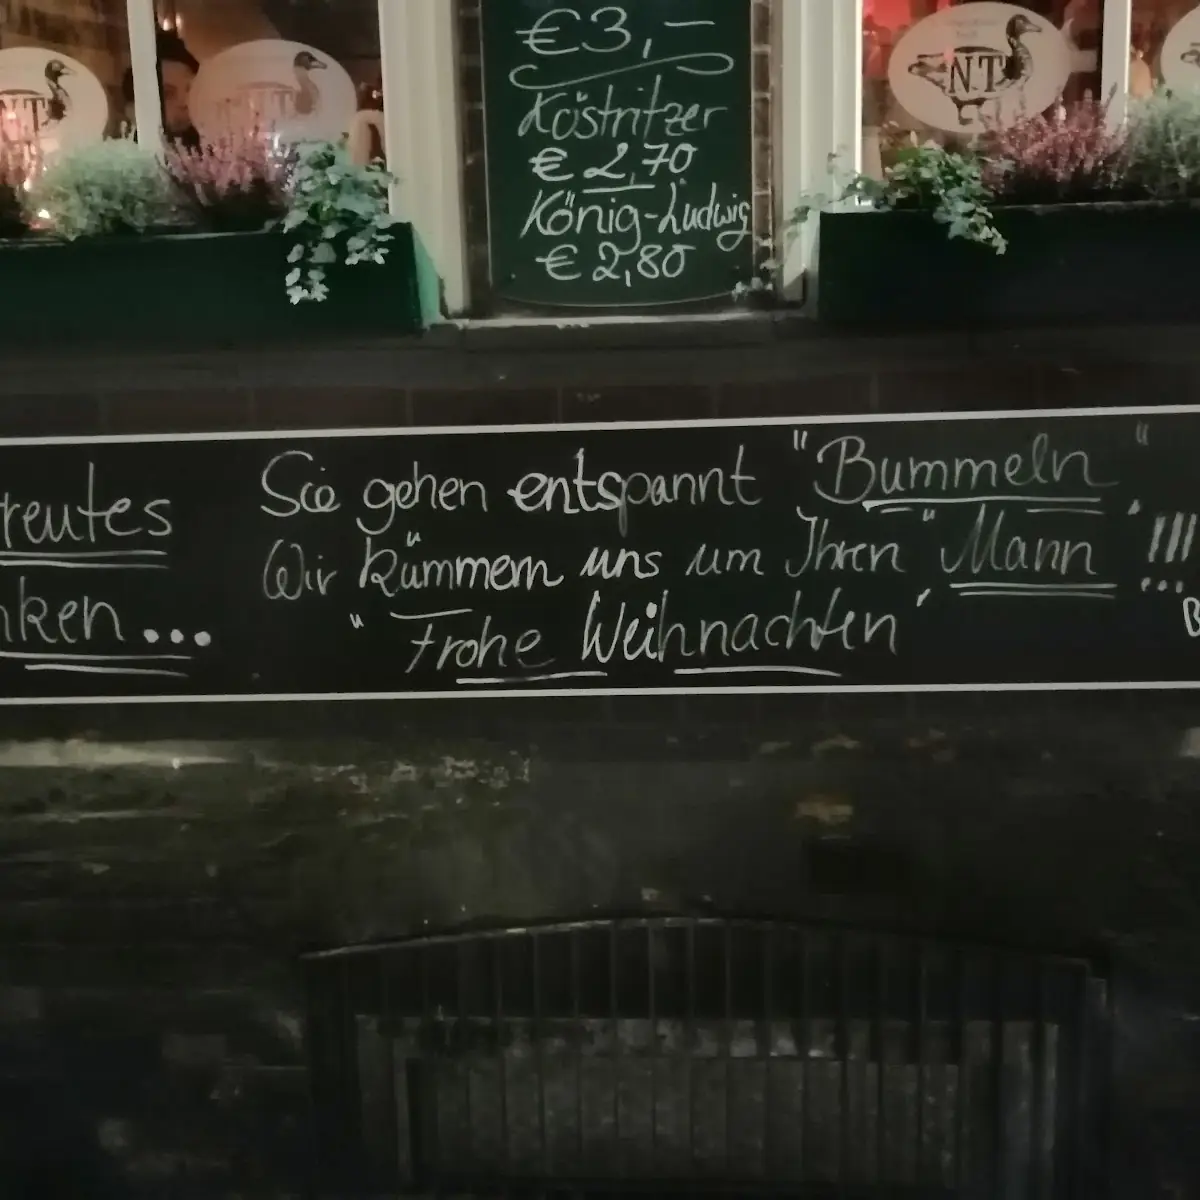 €3,-
Köstritzer
€ 2,70
König-Ludwig
€ 2,80
NT
NT
NT
reutes
nken...
Sie gehen entspannt "Bummeln"
Wir kümmern uns um Ihren "Mann" !!!...
"Frohe Weihnachten"
B